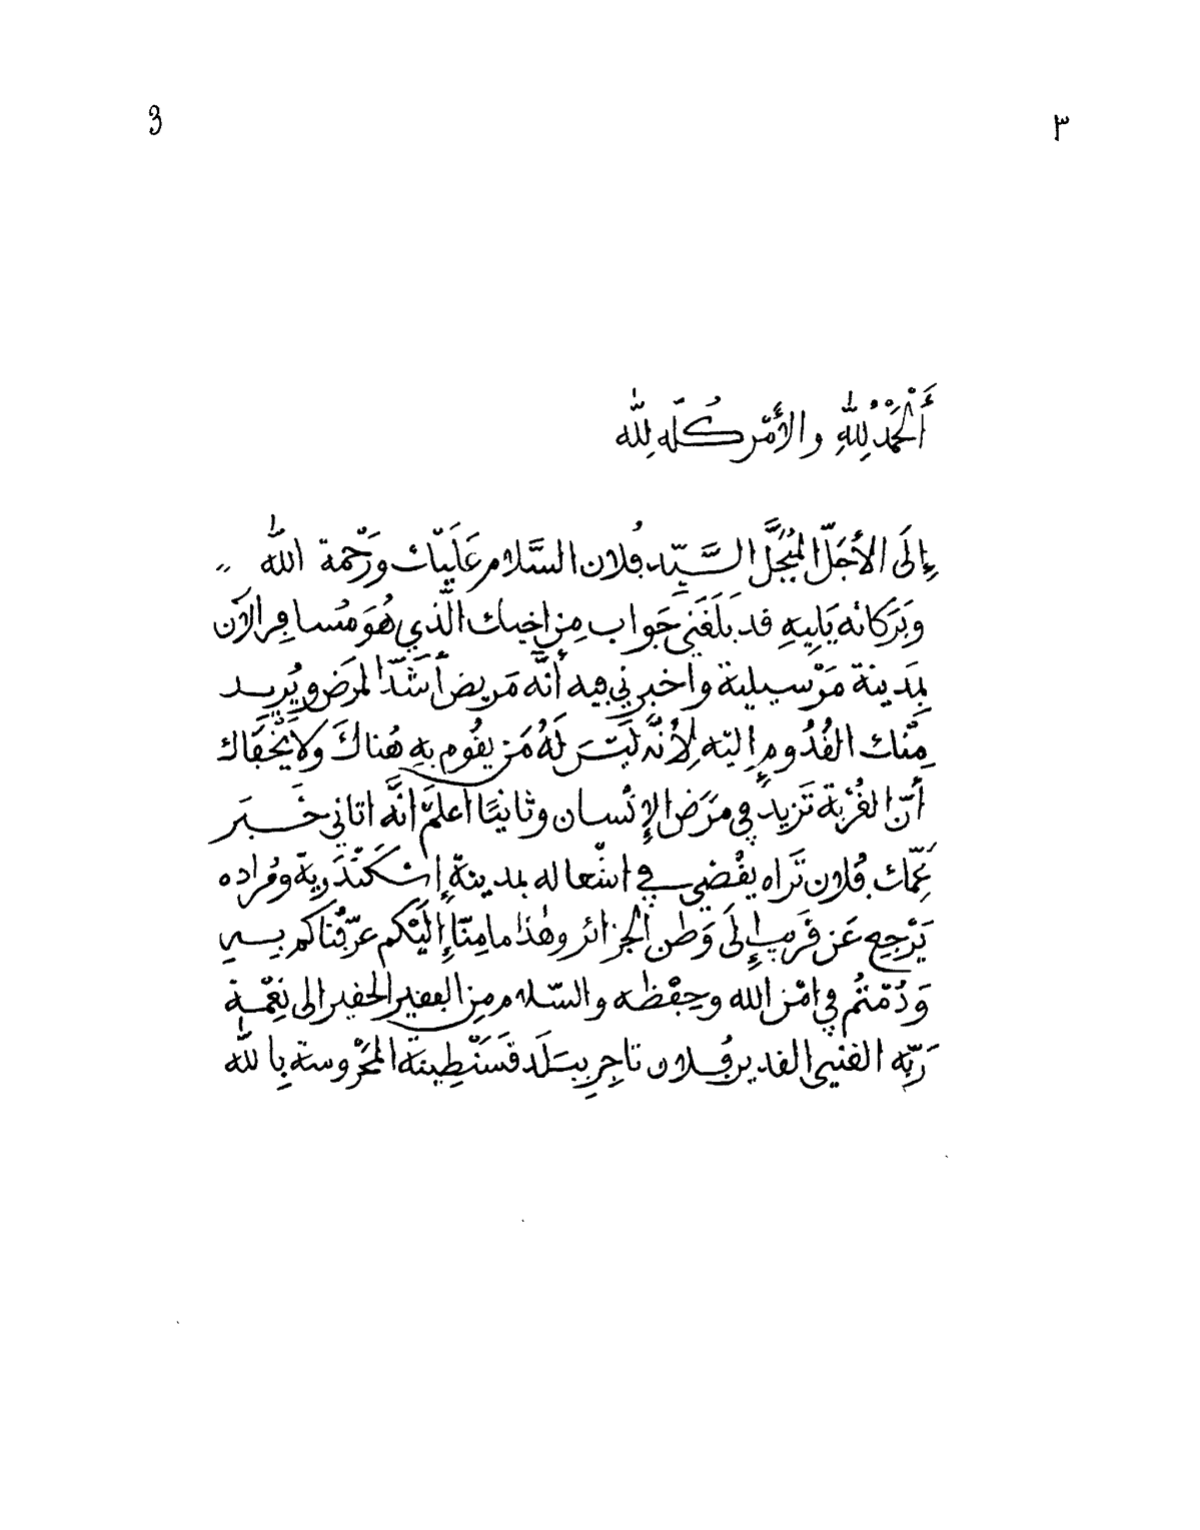 3 ٣
أَلْحَمْدُ لِلّٰهِ والأَمْر كُلّه لِلّٰه
إِلَى الأَجَلّ المُبَجَّل السَّيِّد فُلان السَّلام عَلَيْك وَرَحْمة اللّٰه
وَبَرَكاته يَلِيهِ قد بَلَغَنِي جَواب مِن اخيك الَّذي هُوَ مُسافِر الآن
بِمَدينة مَرْسيلية واخبرني فيه أنَّه مَريض أَشَدّ المَرَض ويُريد
مِنْك القُدُوم إِلَيْه لِأَنَّه لَيْسَ لَهُ مَن يقُوم بِهِ هُناكَ وَلاَ يَخْفَاك
أَنّ الغُرْبة تَزيد في مَرَض الإِنْسان وثانيًا أعلم أنَّه اتاني خَبَر
عَمِّك فُلان تَراه يقْضي في اشْغاله بمدينة إِسْكَنْدَرية ومُراده
يَرْجِع عَن قَريب إِلَى وَطن الجزائر وهٰذا ما مِنّا إِلَيْكم عرّفْناكم بسي
وَدُمْتُم في امْن الله وحِفْظه والسّلام مِن الفقير الحقير الى نِعْمة
رَبِّه الغني القدير فُلان تاجِر بِبَلَد قَسَنْطِينة المَحْروسة بِاللّٰه